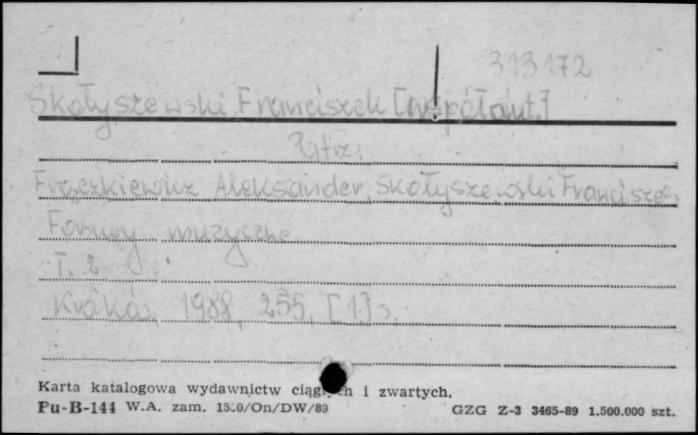 313172
Skołyszewski Franciszek [współaut.]
Patrz:
Frączkiewicz Aleksander, Skołyszewski Franciszek
Formy muzyczne
T. 2
Kraków, 1988, 255, [1] s.
Karta katalogowa wydawnictw ciągłych i zwartych.
Pu-B-144 W.A. zam. 1520/On/DW/89 GZG Z-3 3465-89 1.500.000 szt.